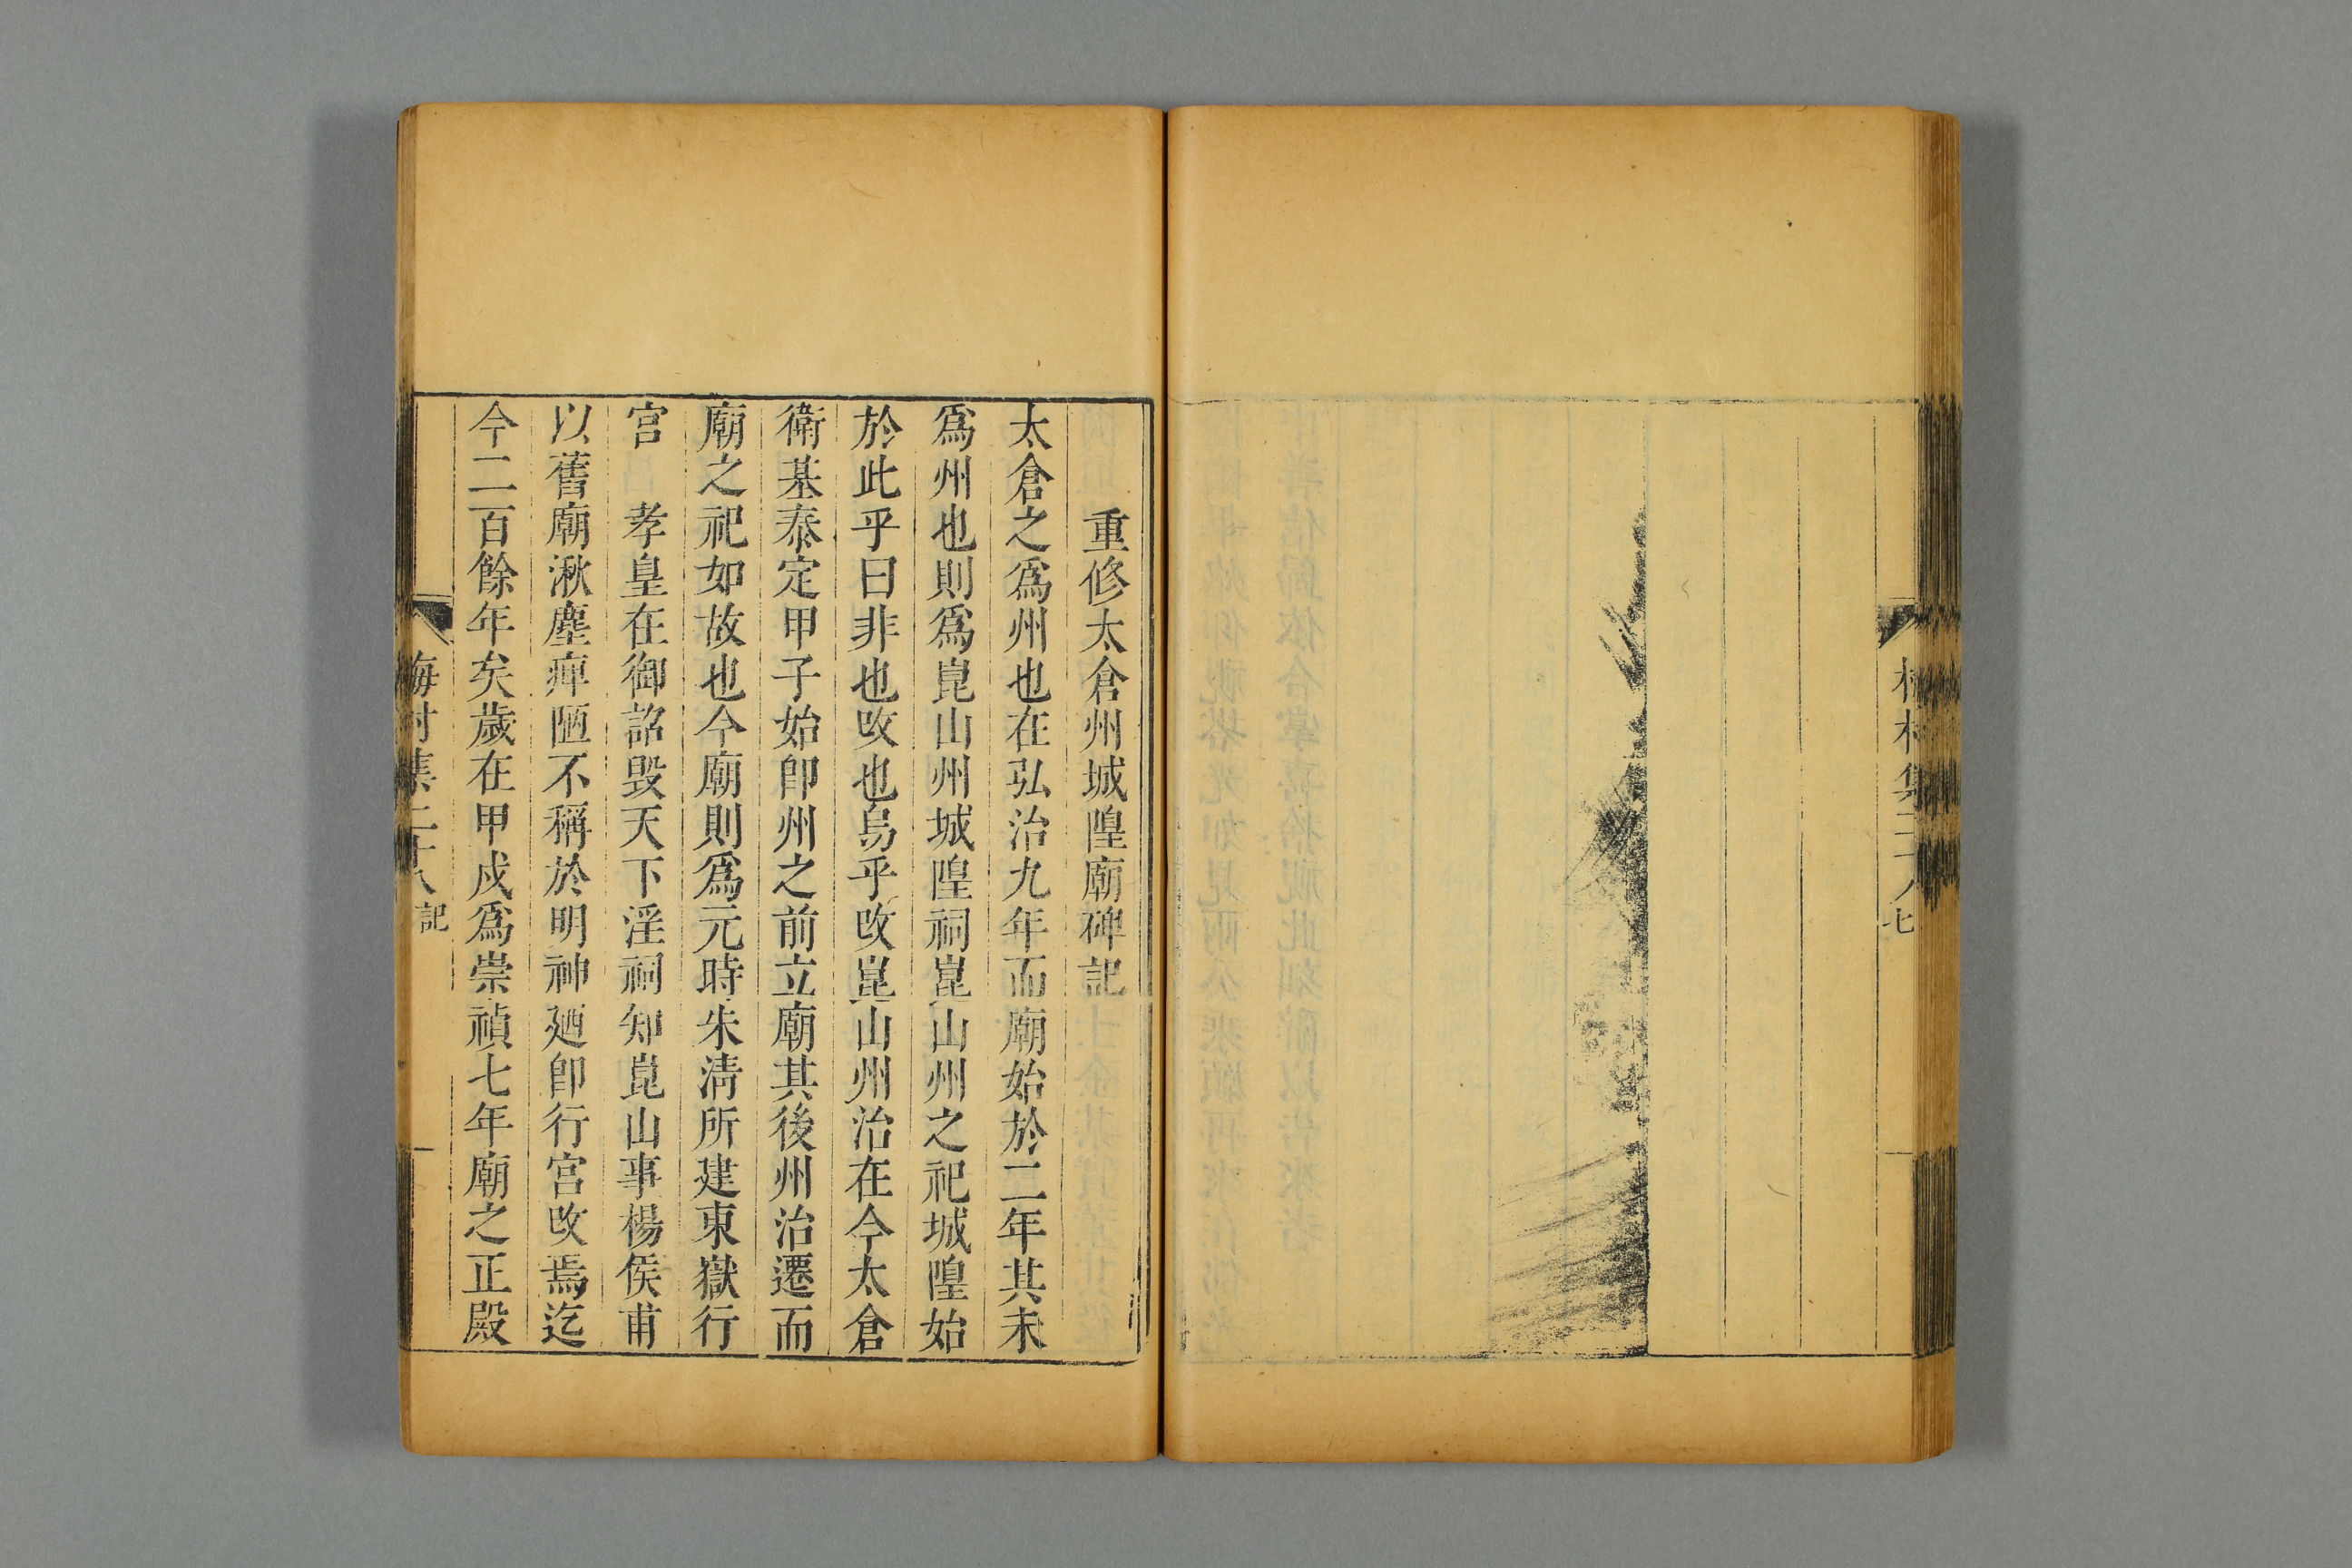 村集二十八
七
重修太倉州城隍廟碑記
太倉之爲州也在弘治九年而廟始於二年其未
爲州也則爲崑山州城隍祠崑山州之祀城隍始
於此乎曰非也攺也烏乎攺崑山州治在今太倉
衛基泰定甲子始卽州之前立廟其後州治遷而
廟之祀如故也今廟則爲元時朱清所建東嶽行
宮　孝皇在御詔毁天下淫祠知崑山事楊侯甫
以舊廟湫塵痺陋不稱於明神廼卽行宮攺焉迄
今二百餘年矣歲在甲戌爲崇禎七年廟之正殿
梅村集二十八
記